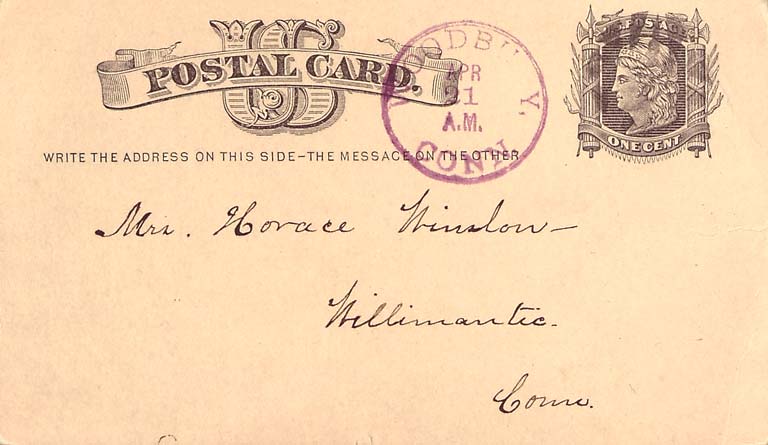 US
POSTAL CARD.
WOODBURY.
APR
21
A.M.
CONN.
U.S. POSTAGE
ONE CENT
WRITE THE ADDRESS ON THIS SIDE–THE MESSAGE ON THE OTHER
Mrs. Horace Winslow–
Willimantic.
Conn.